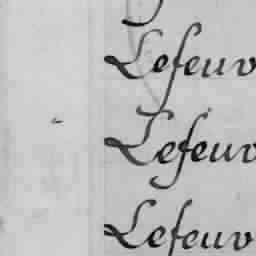 Lefeuv
Lefeuv
Lefeuv